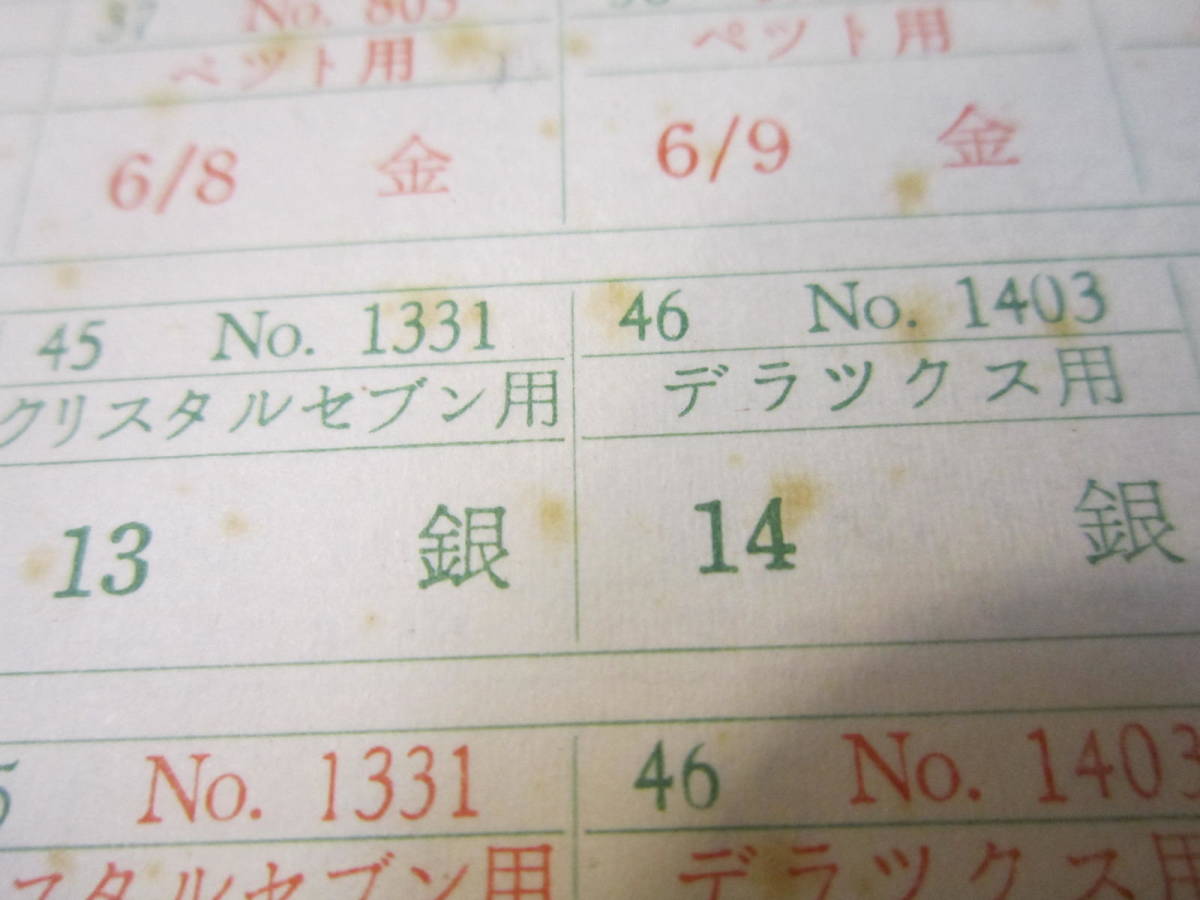 37 No. 805
ペット用 ペット用
6/8 金 6/9 金
45 No. 1331 46 No. 1403
クリスタルセブン用 デラツクス用
13 銀 14 銀
No. 1331 46 No. 1403
スタルセブン用 デラツクス用